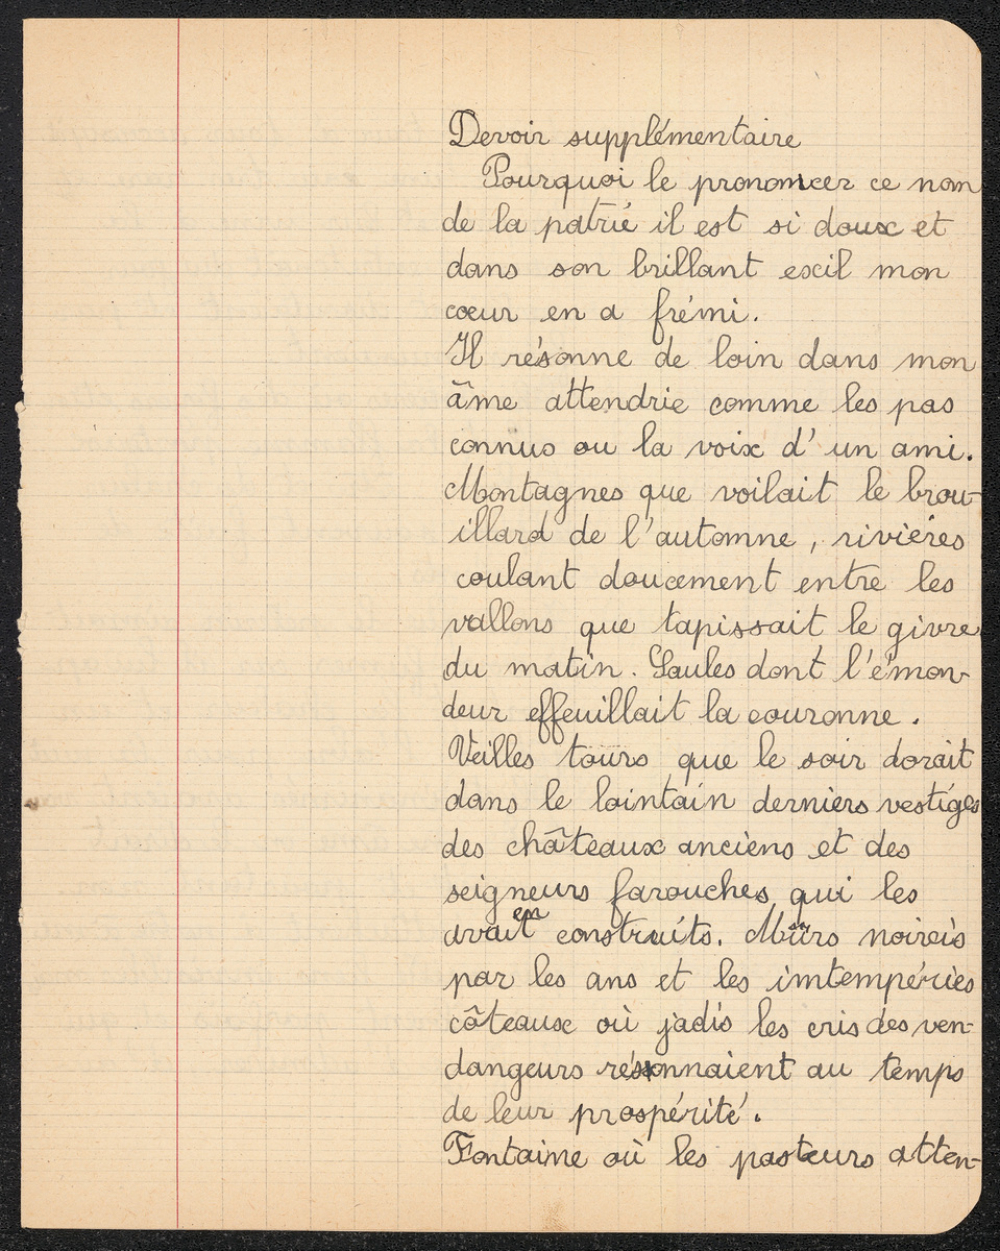 Devoir supplémentaire
Pourquoi le prononcer ce nom
de la patrie il est si doux et
dans son brillant exil mon
cœur en a frémi.
Il résonne de loin dans mon
âme attendrie comme les pas
connus ou la voix d'un ami.
Montagnes que voilait le brou-
illard de l'automne, rivières
coulant doucement entre les
vallons que tapissait le givre
du matin. Saules dont l'émon-
deur effeuillait la couronne.
Veilles tours que le soir dorait
dans le lointain derniers vestiges
des châteaux anciens et des
seigneurs farouches qui les
avait construits. Mûrs noircis
par les ans et les imtempéries
câteaux où jadis les cris des ven-
dangeurs résonnaient au temps
de leur prospérité.
Fontaine où les pasteurs atten-